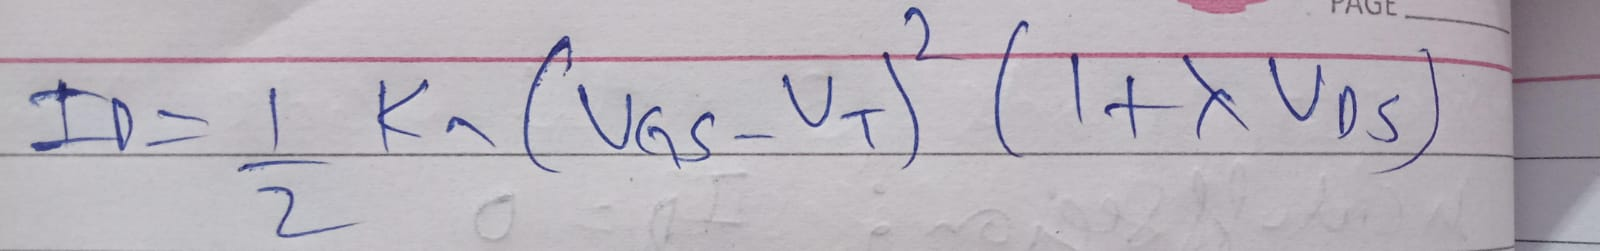 PAGE
I_D = 1/2 K_n (V_GS - V_T)^2 (1 + λ V_DS)